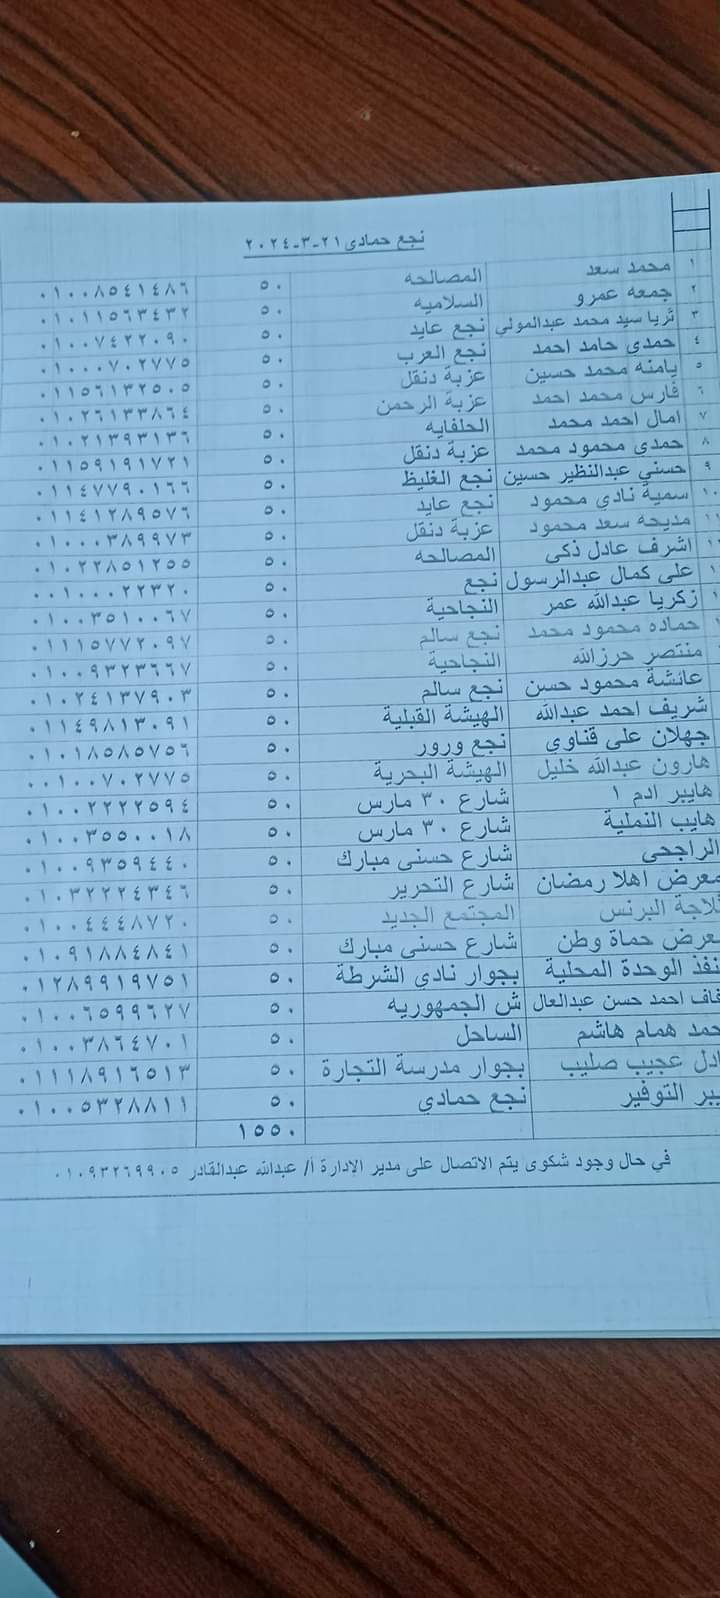 نجع حمادى ٢١-٣-٢٠٢٤
١ محمد سعد المصالحه ٥٠ ٠١٠٠٨٥٤١٤٨٦
٢ جمعه عمرو السلاميه ٥٠ ٠١٠١١٥٦٣٤٣٢
٣ ثريا سيد محمد عبدالمولي نجع عايد ٥٠ ٠١٠٠٧٤٢٢٠٩٠
٤ حمدي حامد احمد نجع العرب ٥٠ ٠١٠٠٠٧٠٢٧٧٥
٥ يامنه محمد حسين عزبة دنقل ٥٠ ٠١١٥٦١٣٢٥٠٥
٦ فارس محمد احمد عزبة الرحمن ٥٠ ٠١٠٢٦١٣٣٨٦٤
٧ امال احمد محمد الحلفايه ٥٠ ٠١٠٢١٣٩٣١٣٦
٨ حمدي محمود محمد عزبة دنقل ٥٠ ٠١١٥٩١٩١٧٢١
٩ حسني عبدالنظير حسين نجع الغليظ ٥٠ ٠١١٤٧٧٩٠١٦٦
سمية نادي محمود نجع عايد ٥٠ ٠١١٤١٢٨٩٥٧٦
مديحه سعد محمود عزبة دنقل ٥٠ ٠١٠٠٠٣٨٩٩٧٣
اشرف عادل ذكى المصالحه ٥٠ ٠١٠٢٢٨٥١٢٥٥
على كمال عبدالرسول نجع ٥٠ ٠٠١٠٠٠٢٢٣٢٠
زكريا عبدالله عمر النجاحية ٥٠ ٠١٠٠٣٥١٠٠٦٧
حماده محمود محمد نجع سالم ٥٠ ٠١١١٥٧٧٢٠٩٧
منتصر حرزالله النجاحية ٥٠ ٠١٠٠٩٣٢٣٦٦٧
عائشة محمود حسن نجع سالم ٥٠ ٠١٠٢٤١٣٧٩٠٣
شريف احمد عبدالله الهيشة القبلية ٥٠ ٠١١٤٩٨١٣٠٩١
جهلان على قناوي نجع ورور ٥٠ ٠١٠١٨٥٨٥٧٥٦
هارون عبدالله خليل الهيشة البحرية ٥٠ ٠٠١٠٠٧٠٢٧٧٥
هايبر ادم ١ شارع ٣٠ مارس ٥٠ ٠١٠٠٢٢٢٢٥٩٤
هايب النملية شارع ٣٠ مارس ٥٠ ٠١٠٠٣٥٥٠٠١٨
الراجحى شارع حسنى مبارك ٥٠ ٠١٠٠٩٣٥٩٤٤٠
معرض اهلا رمضان شارع التحرير ٥٠ ٠١٠٣٢٢٢٤٣٤٦
ثلاجة البرنس المجتمع الجديد ٥٠ ٠١٠٠٤٤٤٨٧٢٠
عرض حماة وطن شارع حسنى مبارك ٥٠ ٠١٠٩١٨٨٤٨٤١
نفذ الوحدة المحلية بجوار نادى الشرطة ٥٠ ٠١٢٨٩٩١٩٧٥١
فاف احمد حسن عبدالعال ش الجمهوريه ٥٠ ٠١٠٠٦٥٩٩٦٢٧
حمد همام هاشم الساحل ٥٠ ٠١٠٠٣٨٦٤٧٠١
ادل عجيب صليب بجوار مدرسة التجارة ٥٠ ٠١١١٨٩١٦٥١٣
يبر التوفير نجع حمادي ٥٠ ٠١٠٠٥٣٢٨٨١١
١٥٥٠
في حال وجود شكوى يتم الاتصال على مدير الإدارة أ/ عبدالله عبدالقادر ٠١٠٩٣٢٦٩٩٠٥